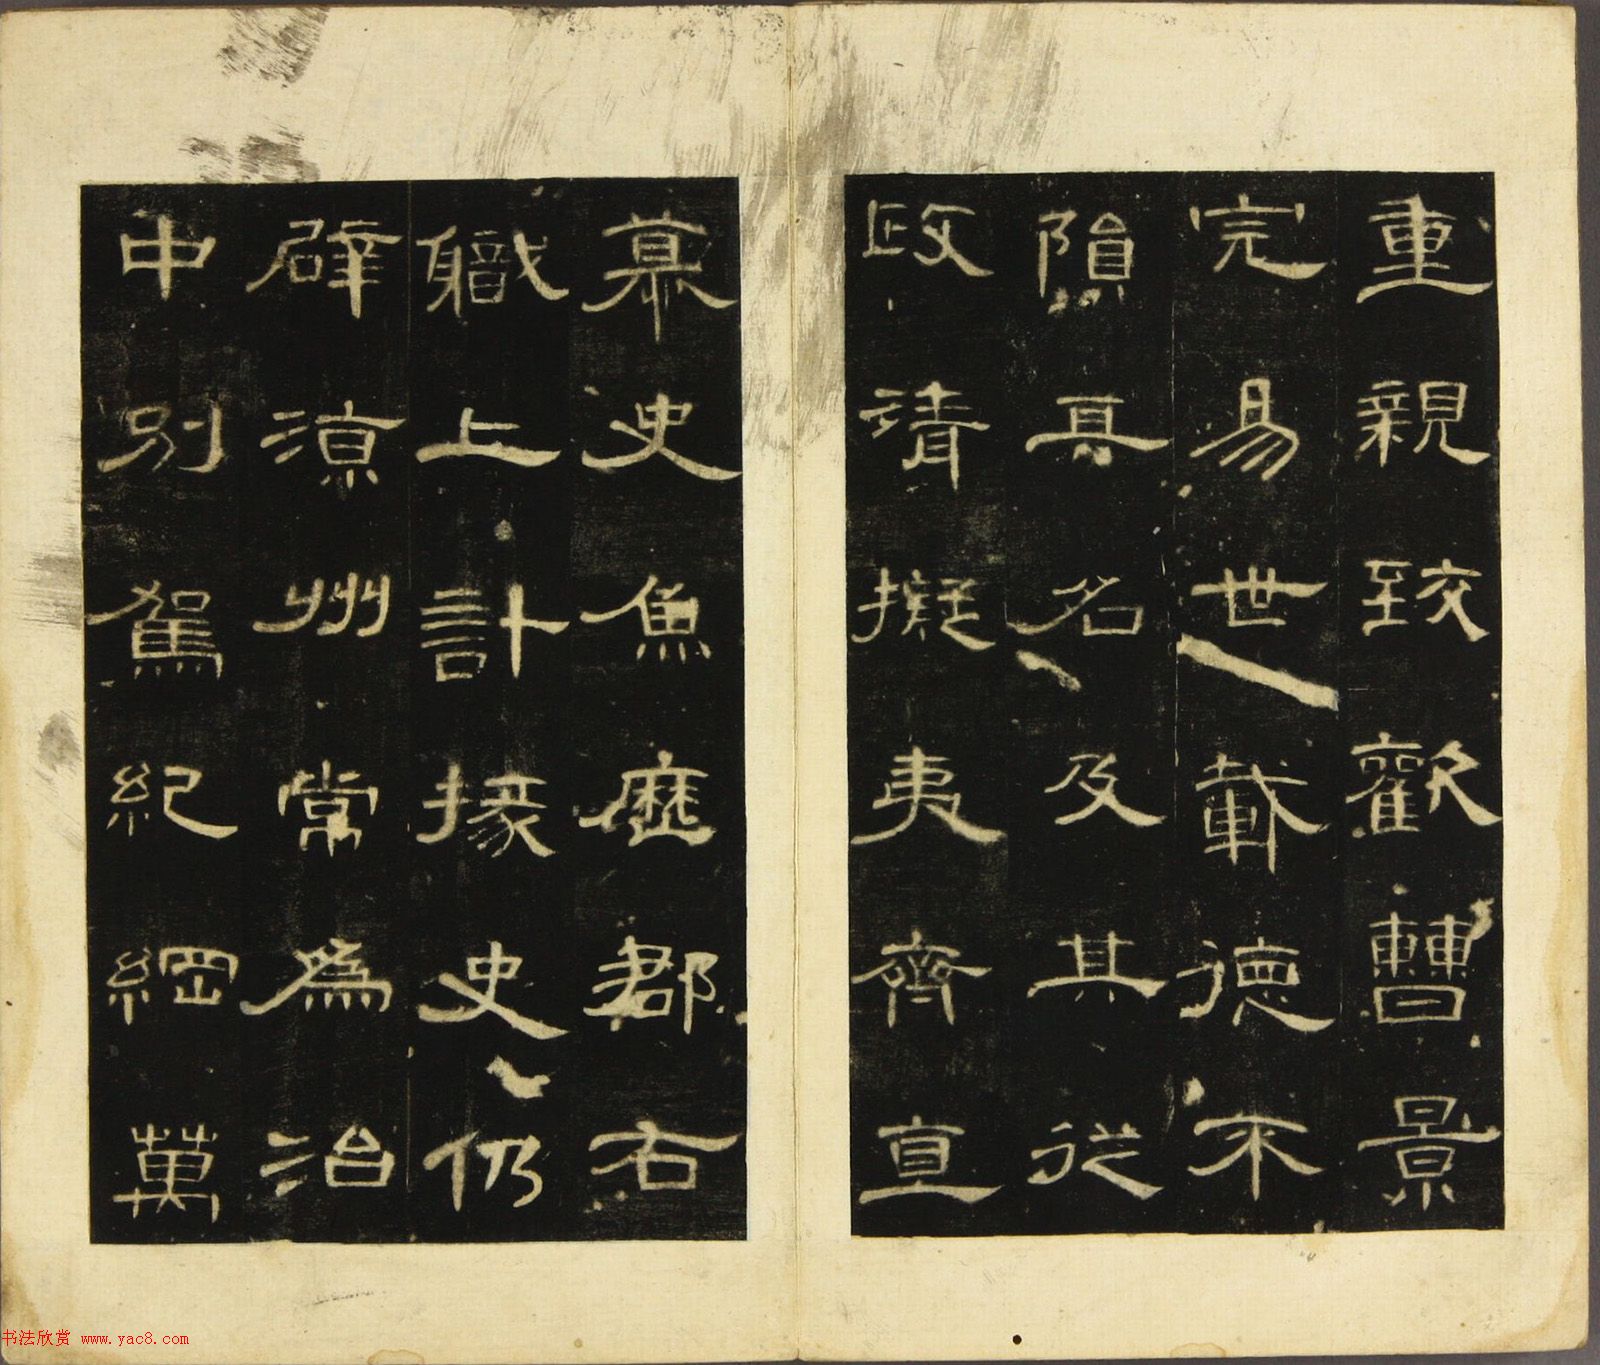 重親致歡曹景
完易世載德不
隕其名及其從
政清擬夷齊直
慕史魚歷郡右
職上計掾史仍
辟涼州常為治
中別駕紀綱萬
书法欣赏 www.yac8.com